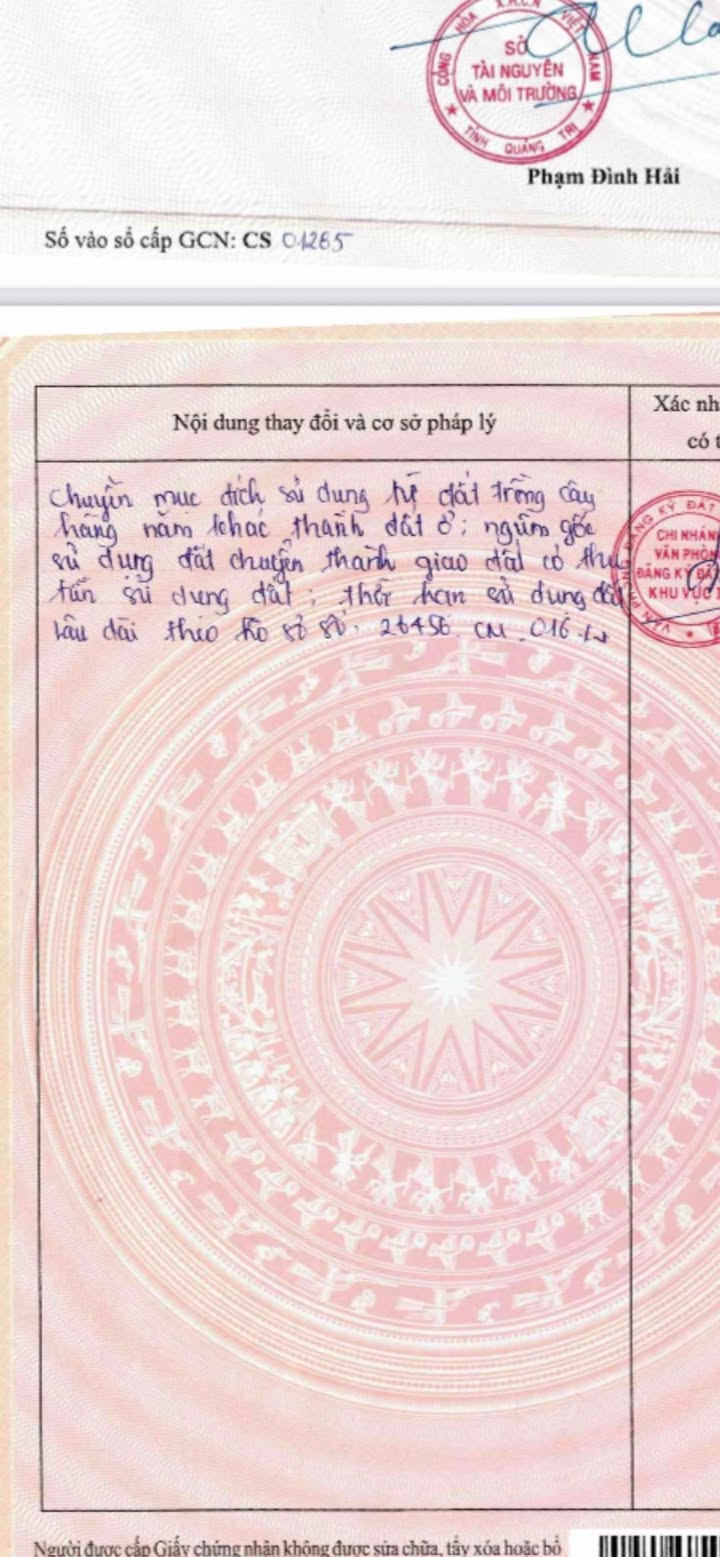 CỘNG HÒA X.H.C.N VIỆT NAM
SỞ
TÀI NGUYÊN
VÀ MÔI TRƯỜNG
TỈNH QUẢNG TRỊ
Phạm Đình Hải
Số vào sổ cấp GCN: CS 01265
Nội dung thay đổi và cơ sở pháp lý
Xác nh
có t
Chuyển mục đích sử dụng từ đất trồng cây
hàng năm khác thành đất ở; nguồn gốc
sử dụng đất chuyển thành giao đất có thu
tiền sử dụng đất; thời hạn sử dụng đất
lâu dài theo hồ sơ số: 26456. CM. 016.
ĐĂNG KÝ ĐẤT
CHI NHÁN
VĂN PHÒN
ĐĂNG KÝ ĐẤ
KHU VỰC
Người được cấp Giấy chứng nhận không được sửa chữa, tẩy xóa hoặc bổ